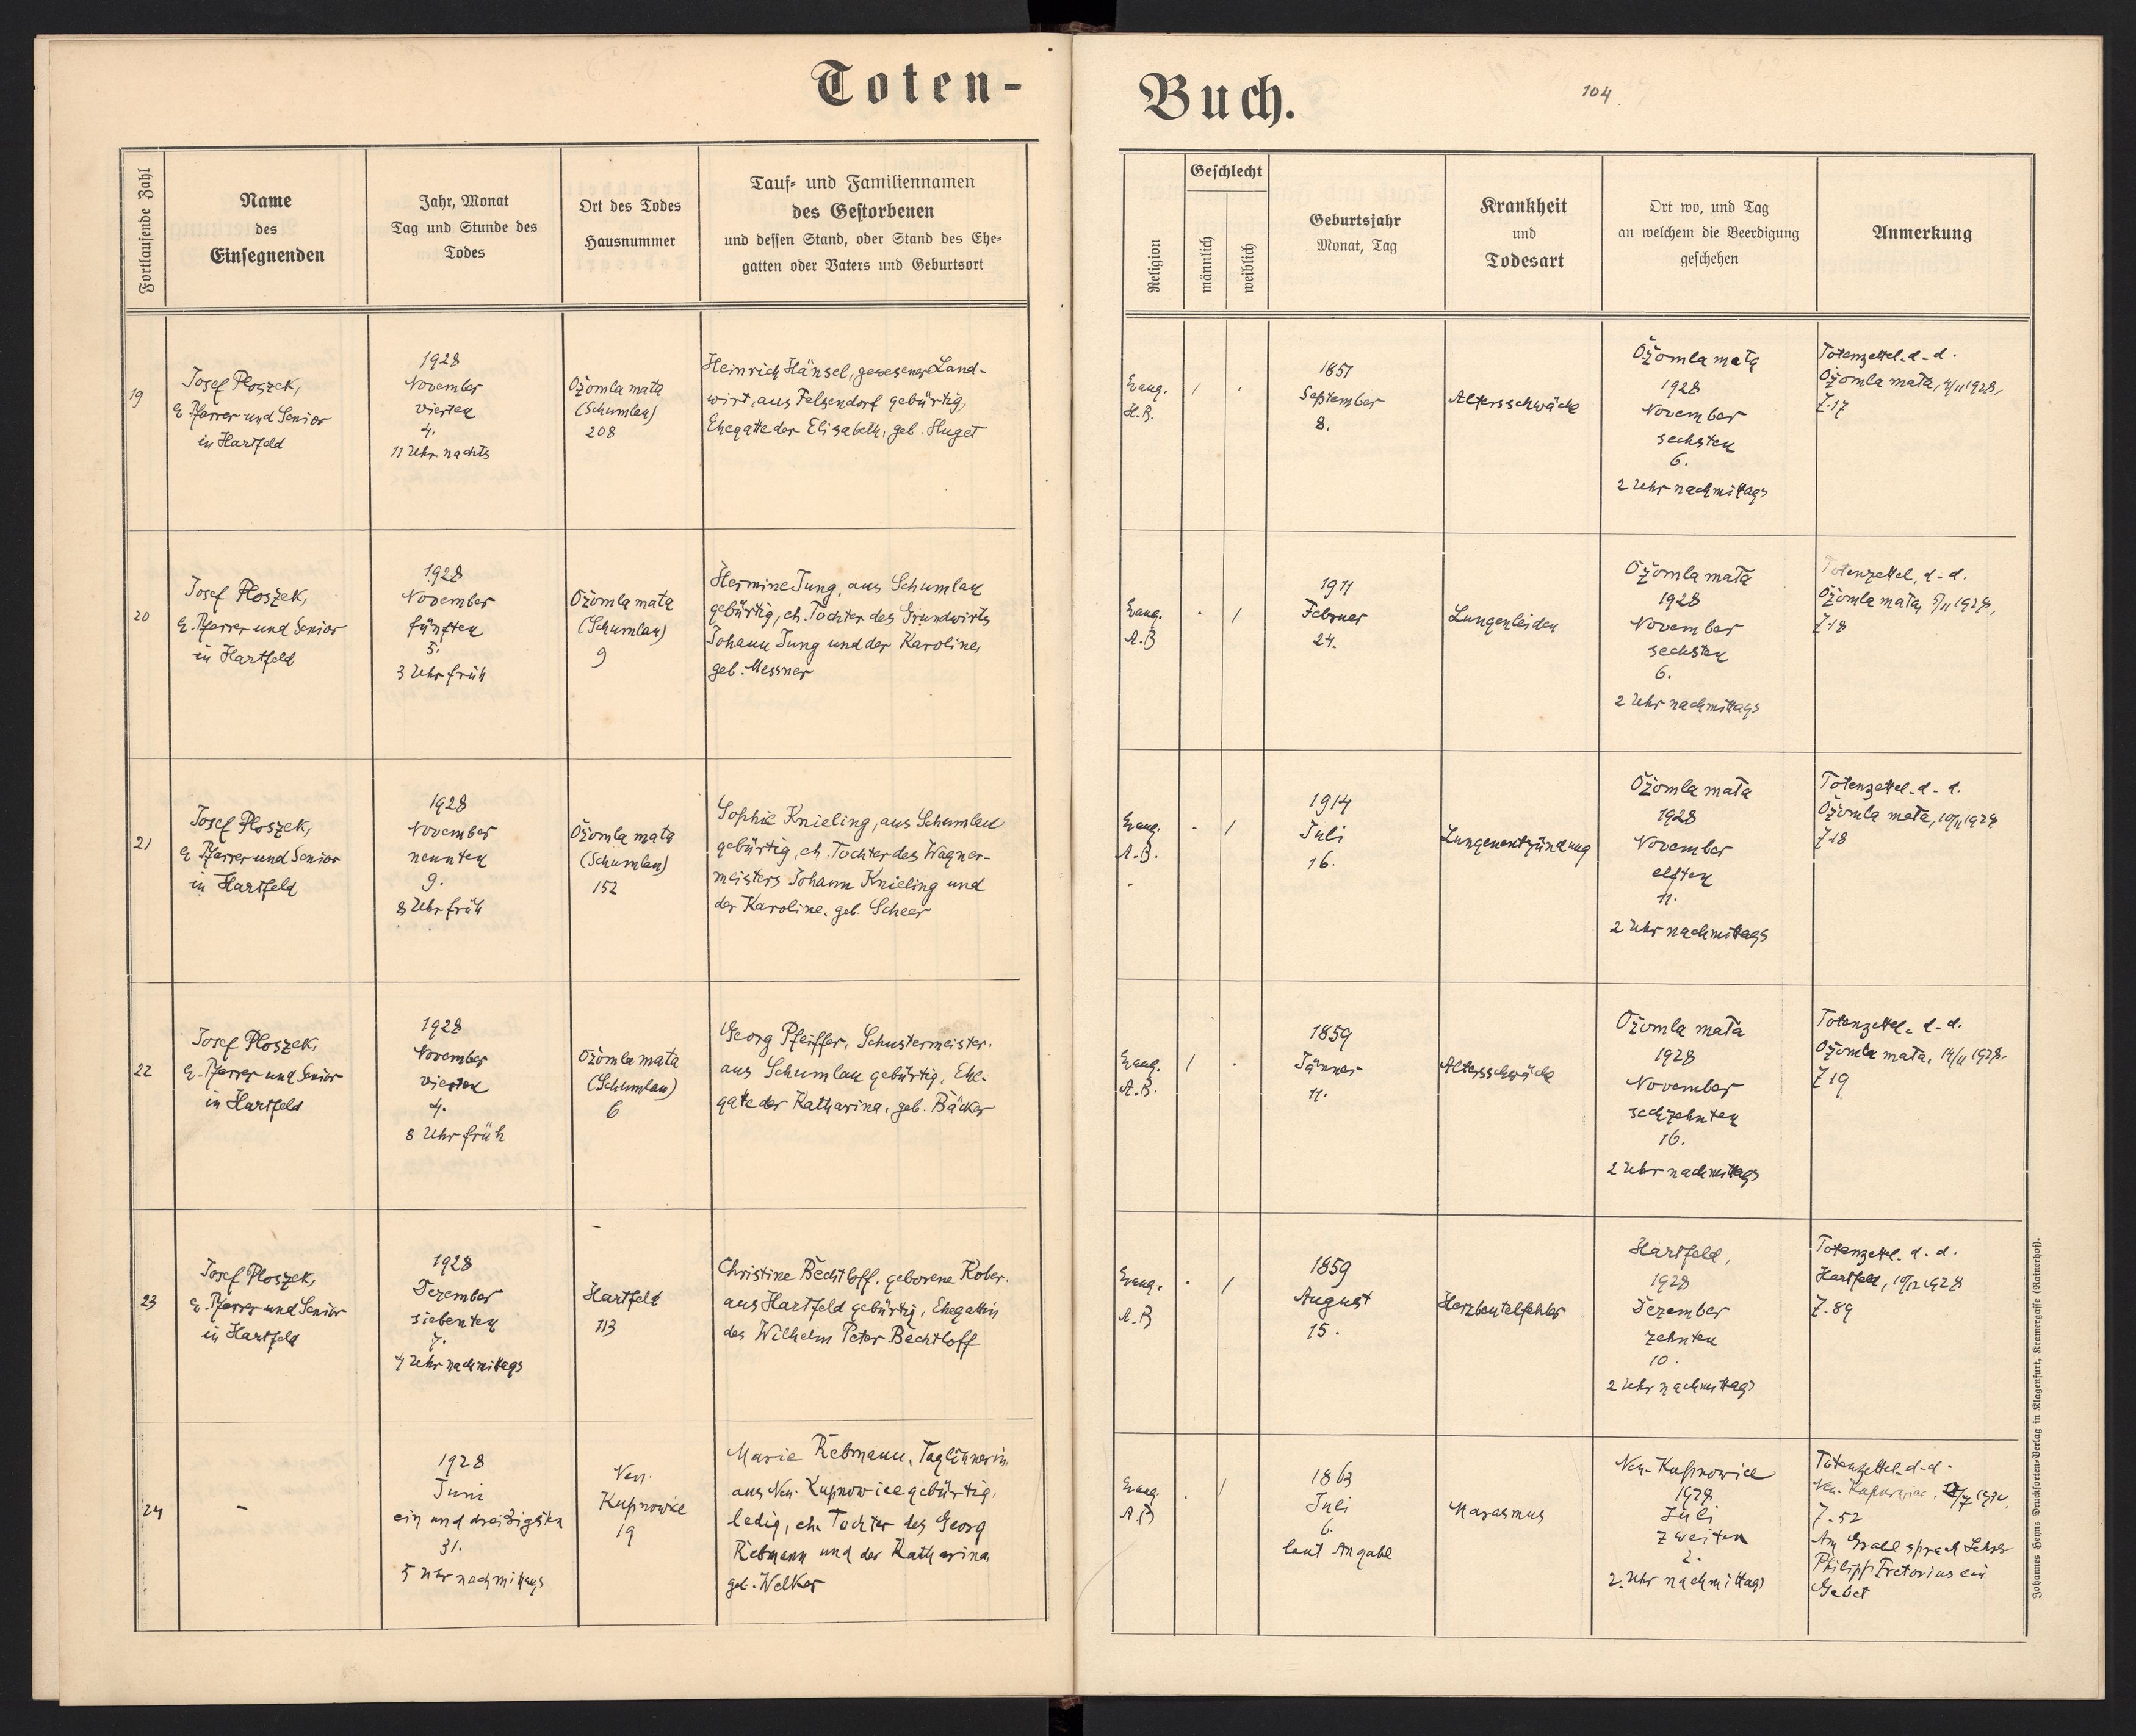 Toten-
Buch.
104
Fortlaufende Zahl
Name
des
Einsegnenden
Jahr, Monat
Tag und Stunde des
Todes
Ort des Todes
Hausnummer
Tauf- und Familiennamen
des Gestorbenen
und dessen Stand, oder Stand des Ehe-
gatten oder Vaters und Geburtsort
Religion
Geschlecht
männlich
weiblich
Geburtsjahr
Monat, Tag
Krankheit
und
Todesart
Ort wo, und Tag
an welchem die Beerdigung
geschehen
Anmerkung
19
Josef Ploszek,
e. Pfarrer und Senior
in Hartfeld
1928
November
vierten
4.
11 Uhr nachts
Ożomla mała
(Schumlau)
208
Heinrich Hänsel, gewesener Land-
wirt, aus Felsendorf gebürtig,
Ehegatte der Elisabeth, geb. Huget
Evang.
H.B.
/
.
1851
September
8.
Altersschwäche
Ożomla mała
1928
November
sechsten
6.
2 Uhr nachmittags
Totenzettel d-d.
Ożomla mała, 4/11 1928,
Z.17
20
Josef Ploszek,
e. Pfarrer und Senior
in Hartfeld
1928
November
fünften
5.
3 Uhr früh
Ożomla mała
(Schumlau)
9
Hermine Jung, aus Schumlau
gebürtig, eh. Tochter des Grundwirts
Johann Jung und der Karoline,
geb. Messner
Evang.
A.B
.
/
1911
Februar
24.
Lungenleiden
Ożomla mała
1928
November
sechsten
6.
2 Uhr nachmittags
Totenzettel, d-d.
Ożomla mała, 5/11 1928,
Z.18
21
Josef Ploszek,
e. Pfarrer und Senior
in Hartfeld
1928
November
neunten
9.
8 Uhr früh
Ożomla mała
(Schumlau)
152
Sophie Knieling, aus Schumlau
gebürtig, eh. Tochter des Wagner-
meisters Johann Knieling und
der Karoline, geb. Scheer
Evang.
A.B.
.
/
1914
Juli
16.
Lungenentzündung
Ożomla mała
1928
November
elften
11.
2 Uhr nachmittags
Totenzettel d-d.
Ożomla mała, 10/11 1928
Z.18
22
Josef Ploszek,
e. Pfarrer und Senior
in Hartfeld
1928
November
vierten
4.
8 Uhr früh
Ożomla mała
(Schumlau)
6
Georg Pfeiffer, Schustermeister,
aus Schumlau gebürtig, Ehe-
gatte der Katharina, geb. Bäcker
Evang.
A.B.
/
.
1859
Jänner
11.
Altersschwäche
Ożomla mała
1928
November
sechzehnten
16.
2 Uhr nachmittags
Totenzettel. d-d.
Ożomla mała, 14/11 1928.
Z.19
23
Josef Ploszek,
e. Pfarrer und Senior
in Hartfeld
1928
Dezember
siebenten
7.
4 Uhr nachmittags
Hartfeld
113
Christine Bechtloff, geborene Kober.
aus Hartfeld gebürtig, Ehegattin
des Wilhelm Peter Bechtloff
Evang.
A.B
.
/
1859
August
15.
Herzbeutelfehler
Hartfeld,
1928
Dezember
zehnten
10.
2 Uhr nachmittags
Totenzettel. d.d.
Hartfeld, 10/12 1928
Z.89
24
-
1928
Juni
ein und dreißigsten
31.
5 Uhr nachmittags
Neu-
Kupnowice
19
Marie Rebmann, Taglöhnerin,
aus Neu-Kupnowice gebürtig,
ledig, eh. Tochter des Georg
Rebmann und der Katharina
geb. Welker
Evang.
A.B
.
/
1863
Juli
6.
laut Angabe
Marasmus
Neu-Kupnowice
1928
Juli
zweiten
2.
2. Uhr nachmittags
Totenzettel d-d.
Neu-Kupnowice,
Z.52
Am Grabe sprach Lehrer
Philipp Pretorius ein
Gebet
Johannes Heyns Drucksorten-Verlag in Klagenfurt, Kramergasse (Rainerhof).